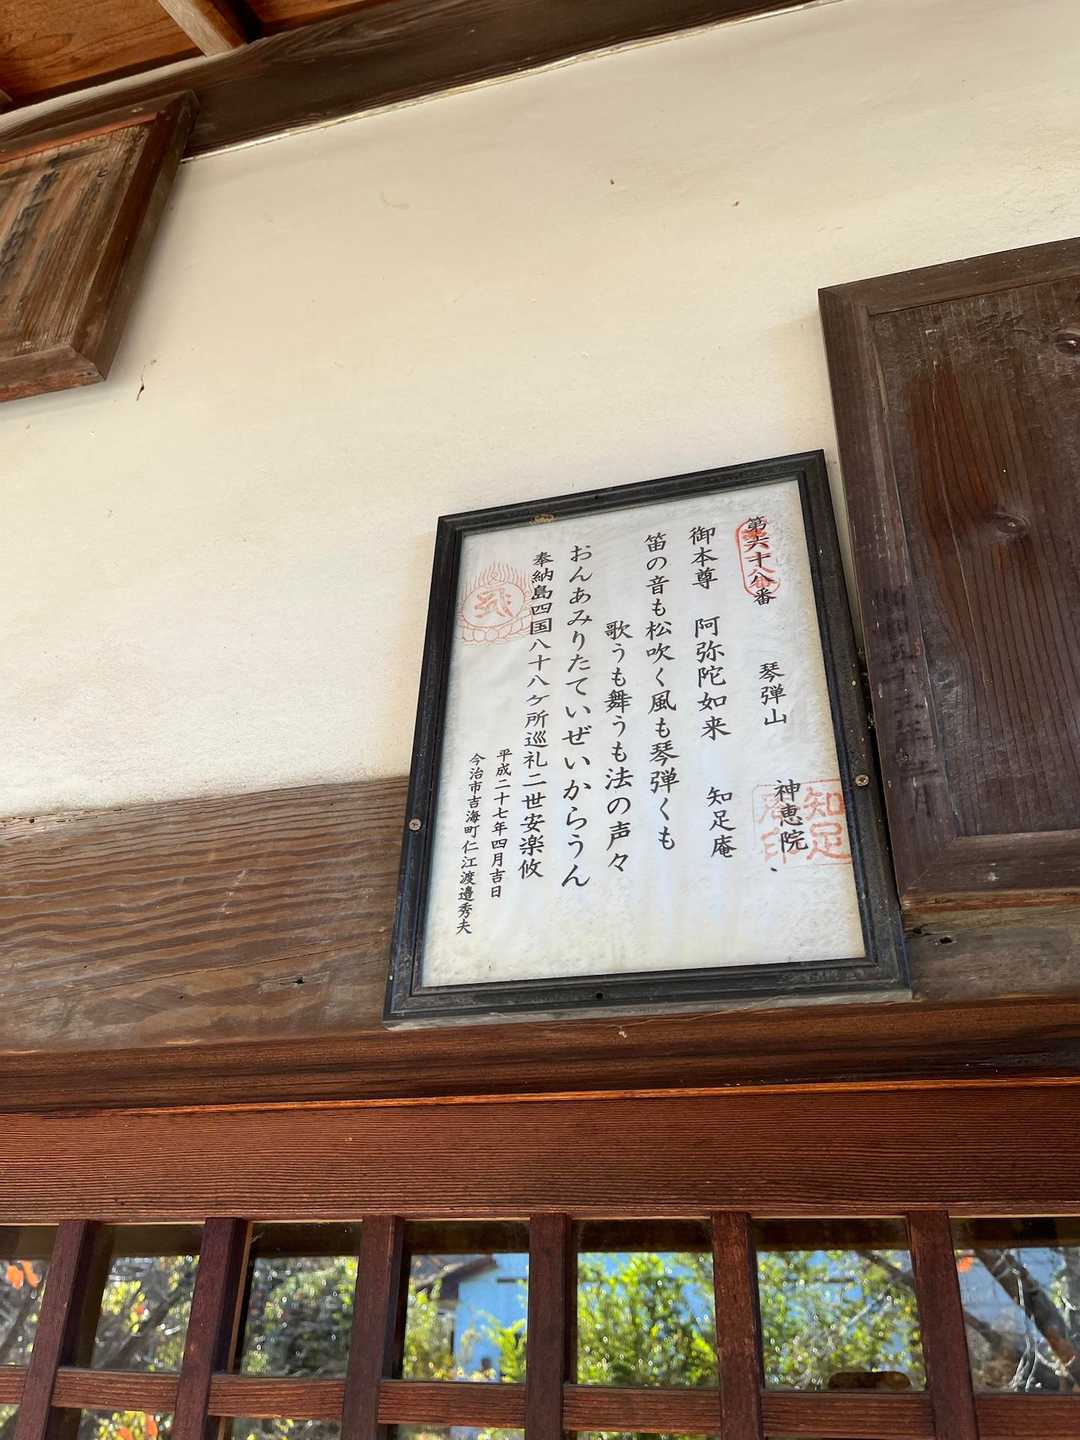 第六十八番 琴弾山 神恵院、
御本尊 阿弥陀如来 知足庵
笛の音も松吹く風も琴弾くも
歌うも舞うも法の声々
おんあみりたていぜいからうん
奉納島四国八十八ケ所巡礼二世安楽攸
平成二十七年四月吉日
今治市吉海町仁江渡邉秀夫
知足